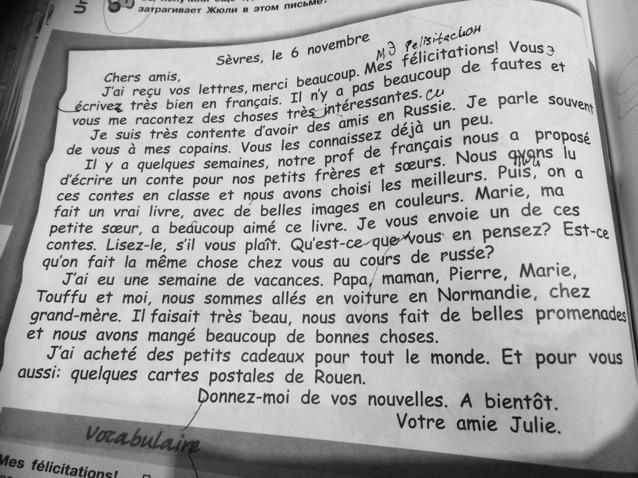 затрагивает Жюли в этом письме.
Sèvres, le 6 novembre
Chers amis,
J'ai reçu vos lettres, merci beaucoup. Mes félicitations! Vous
écrivez très bien en français. Il n'y a pas beaucoup de fautes et
vous me racontez des choses très intéressantes.
Je suis très contente d'avoir des amis en Russie. Je parle souvent
de vous à mes copains. Vous les connaissez déjà un peu.
Il y a quelques semaines, notre prof de français nous a proposé
d'écrire un conte pour nos petits frères et sœurs. Nous avons lu
ces contes en classe et nous avons choisi les meilleurs. Puis, on a
fait un vrai livre, avec de belles images en couleurs. Marie, ma
petite sœur, a beaucoup aimé ce livre. Je vous envoie un de ces
contes. Lisez-le, s'il vous plaît. Qu'est-ce que vous en pensez? Est-ce
qu'on fait la même chose chez vous au cours de russe?
J'ai eu une semaine de vacances. Papa, maman, Pierre, Marie,
Touffu et moi, nous sommes allés en voiture en Normandie, chez
grand-mère. Il faisait très beau, nous avons fait de belles promenades
et nous avons mangé beaucoup de bonnes choses.
J'ai acheté des petits cadeaux pour tout le monde. Et pour vous
aussi: quelques cartes postales de Rouen.
Donnez-moi de vos nouvelles. A bientôt.
Votre amie Julie.
Vocabulaire
Mes félicitations!